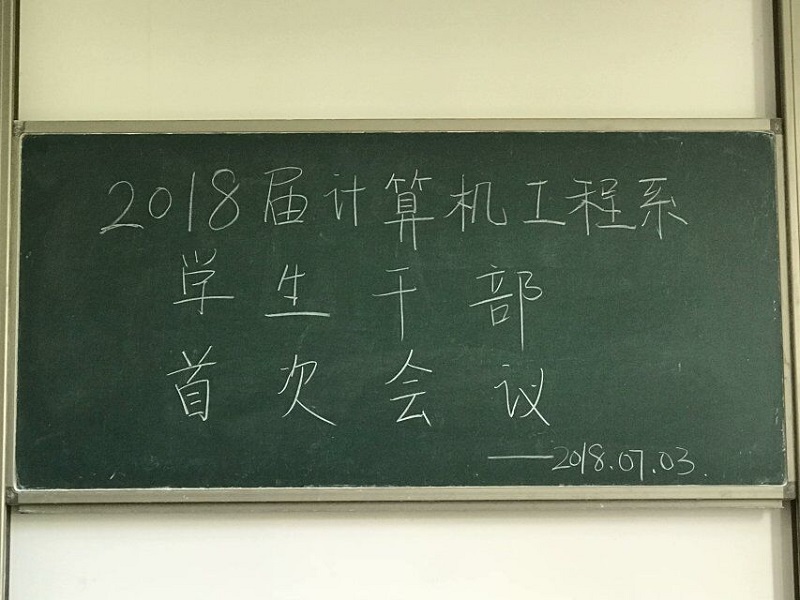 2018届计算机工程系
学生干部
首次会议
——2018.07.03.